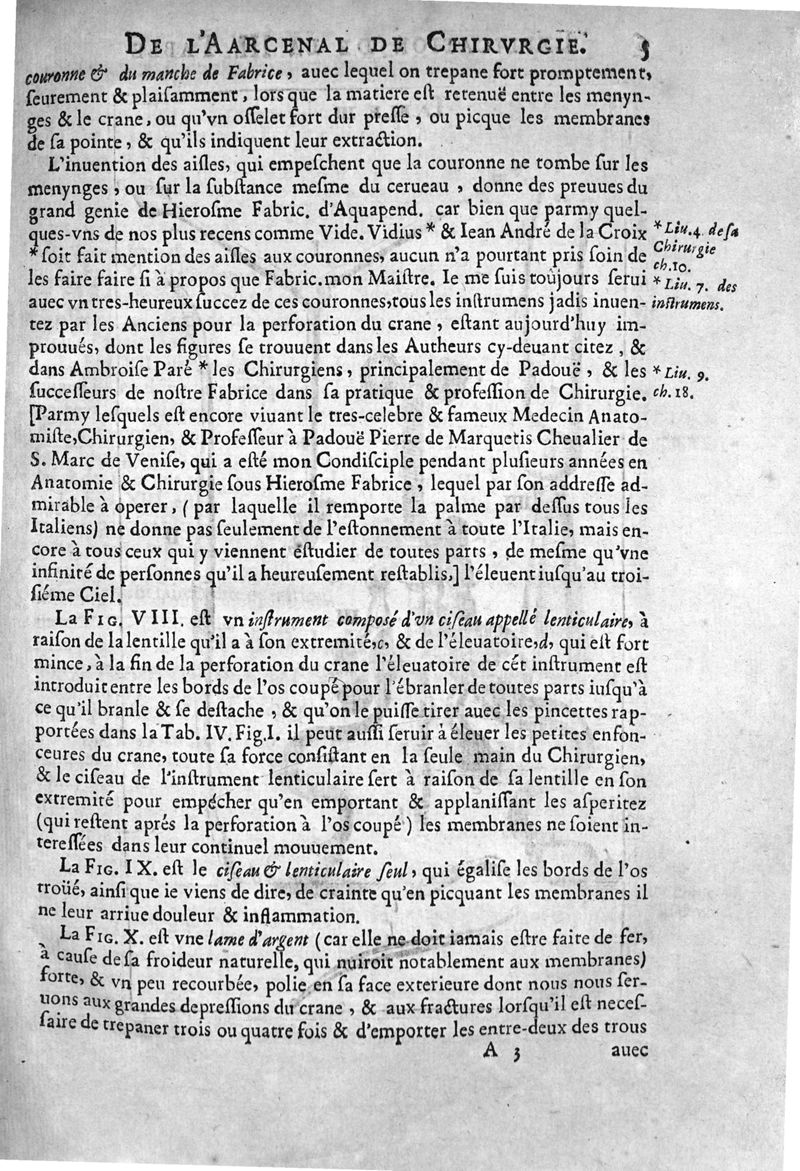 DE L'AARCENAL DE CHIRVRGIE. 5
couronne & du manche de Fabrice, auec lequel on trepane fort promptement,
ſeurement & plaiſamment, lors que la matiere eſt retenuë entre les menyn-
ges & le crane, ou qu'vn oſſelet fort dur preſſe, ou picque les membranes
de ſa pointe, & qu'ils indiquent leur extraction.
L'inuention des aiſles, qui empeſchent que la couronne ne tombe ſur les
menynges, ou ſur la ſubſtance meſme du cerueau, donne des preuues du
grand genie de Hieroſme Fabric. d'Aquapend. car bien que parmy quel-
ques-vns de nos plus recens comme Vide. Vidius * & Iean André de la Croix
* ſoit fait mention des aiſles aux couronnes, aucun n'a pourtant pris ſoin de
les faire faire ſi à propos que Fabric. mon Maiſtre. Ie me ſuis toûjours ſerui
auec vn tres-heureux ſuccez de ces couronnes, tous les inſtrumens jadis inuen-
tez par les Anciens pour la perforation du crane, eſtant aujourd'huy im-
prouués, dont les figures ſe trouuent dans les Autheurs cy-deuant citez, &
dans Ambroiſe Paré * les Chirurgiens, principalement de Padouë, & les
ſucceſſeurs de noſtre Fabrice dans ſa pratique & profeſſion de Chirurgie.
[Parmy leſquels eſt encore viuant le tres-celebre & fameux Medecin Anato-
miſte, Chirurgien, & Profeſſeur à Padouë Pierre de Marquetis Cheualier de
S. Marc de Veniſe, qui a eſté mon Condiſciple pendant pluſieurs années en
Anatomie & Chirurgie ſous Hieroſme Fabrice, lequel par ſon addreſſe ad-
mirable à operer, (par laquelle il remporte la palme par deſſus tous les
Italiens) ne donne pas ſeulement de l'eſtonnement à toute l'Italie, mais en-
core à tous ceux qui y viennent eſtudier de toutes parts, de meſme qu'vne
infinité de perſonnes qu'il a heureuſement reſtablis,] l'éleuent iuſqu'au troi-
ſiéme Ciel.
La FIG. VIII. eſt vn inſtrument compoſé d'vn ciſeau appellé lenticulaire, à
raiſon de la lentille qu'il a à ſon extremité, c, & de l'éleuatoire, d, qui eſt fort
mince, à la fin de la perforation du crane l'éleuatoire de cét inſtrument eſt
introduit entre les bords de l'os coupé pour l'ébranler de toutes parts iuſqu'à
ce qu'il branle & ſe deſtache, & qu'on le puiſſe tirer auec les pincettes rap-
portées dans la Tab. IV. Fig. I. il peut auſſi ſeruir à éleuer les petites enfon-
ceures du crane, toute ſa force conſiſtant en la ſeule main du Chirurgien,
& le ciſeau de l'inſtrument lenticulaire ſert à raiſon de ſa lentille en ſon
extremité pour empécher qu'en emportant & applaniſſant les aſperitez
(qui reſtent aprés la perforation à l'os coupé) les membranes ne ſoient in-
tereſſées dans leur continuel mouuement.
La FIG. IX. eſt le ciſeau & lenticulaire ſeul, qui égaliſe les bords de l'os
troüé, ainſi que ie viens de dire, de crainte qu'en picquant les membranes il
ne leur arriue douleur & inflammation.
La FIG. X. eſt vne lame d'argent (car elle ne doit iamais eſtre faite de fer,
à cauſe de ſa froideur naturelle, qui nuiroit notablement aux membranes)
forte, & vn peu recourbée, polie en ſa face exterieure dont nous nous ſer-
uons aux grandes depreſſions du crane, & aux fractures lorſqu'il eſt neceſ-
ſaire de trepaner trois ou quatre fois & d'emporter les entre-deux des trous
A 3 auec
* Liu. 4. de ſa
Chirurgie
ch. 10.
* Liu. 7. des
inſtrumens.
* Liu. 9.
ch. 18.